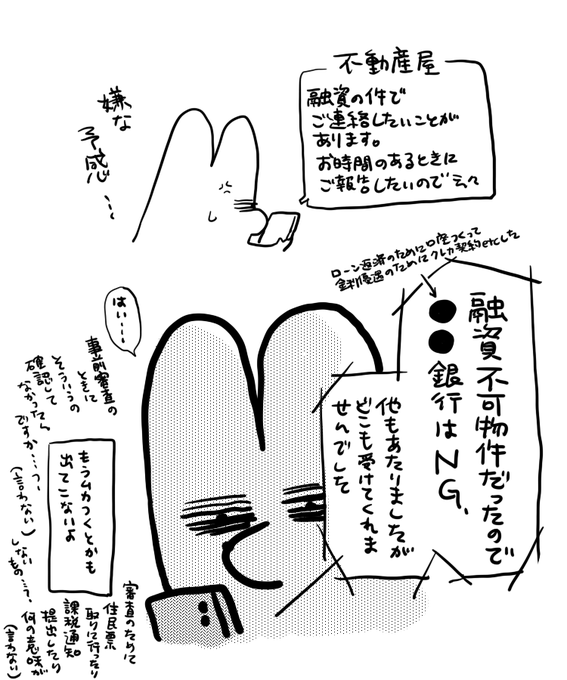 不動産屋
融資の件で
ご連絡したいことが
あります。
お時間のあるときに
ご報告したいので云々
嫌な
予感…
ローン返済のために口座つくって
金利優遇のためにクレカ契約etcした
融資不可物件だったので
●●銀行はNG、
他もあたりましたが
どこも受けてくれま
せんでした
はい…
事前審査の
ときに
そういうの
確認して
なかったら
ですか…っ、
(言わない)
もうムカつくとかも
出てこないよ
審査のために
住民票
取りに行ったり
課税通知
提出したり
何の意味が
(言わない)